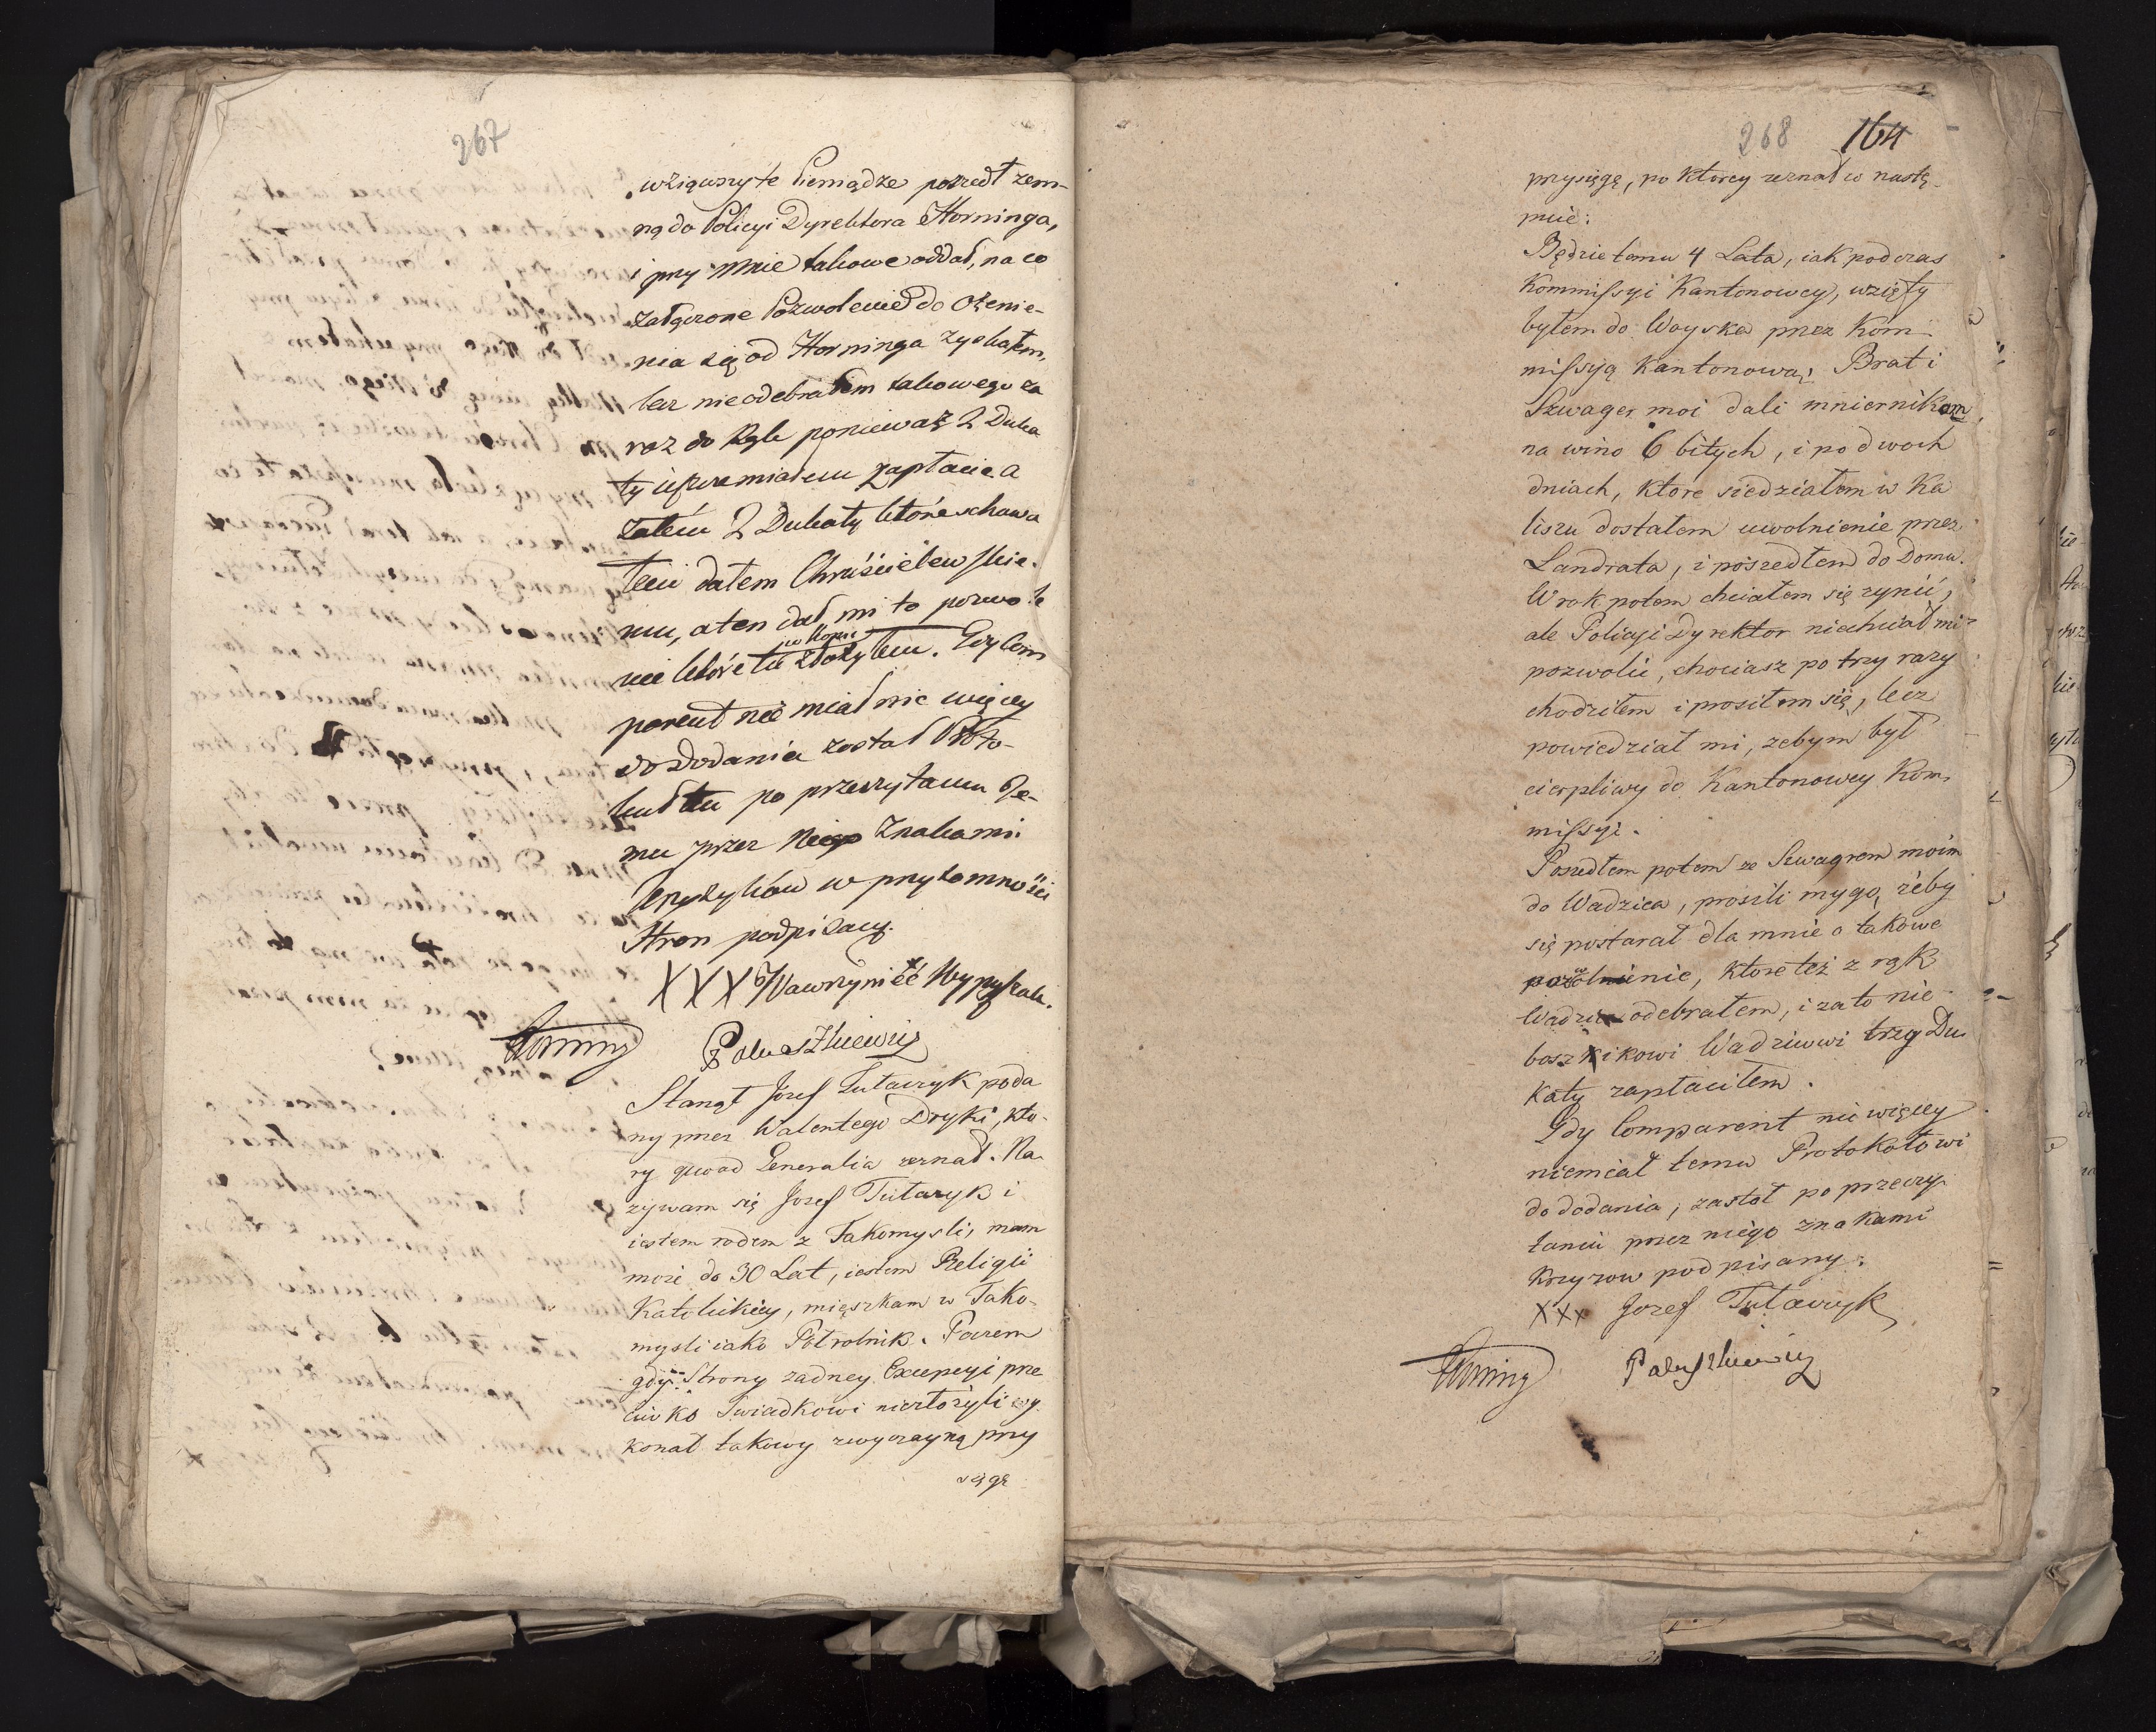 267
wziąwszy te Pieniądze poszedł zem-
ną do Policyi Dyrektora Horninga,
i przy mnie takowe oddał, na co
załączone Pozwolenie do Ożenie-
nia się od Horninga zyskałem,
lecz nie odebrałem takowego za
raz do Rąk ponieważ 2 Duka
ty ieszcze miałem zapłacić a
zatem 2 Dukaty które schowa
łem dałem Chruścielewskie-
mu, a ten dał mi to pozwole
nie które tu w Kopii złożyłem. Gdy Com
parent nie miał nic więcey
do Dodania został Proto-
kuł ten po przeczytaniu Je-
mu przez Niego Znakami
Krzyżyków w przytomności
Stron podpisany.
XXX Wawrzyniec
Horning Paluszkiewicz
Stanął Jozef Tułaczyk poda
ny przez Walentego Dryki, kto-
ry quoad Generalia zeznał. Na
zywam się Jozef Tułaczyk i
iestem rodem z Takomysli, mam
moze do 30 Lat, iestem Religii
Katolickiey, mięszkam w Tako-
mysli iako Półrolnik. Poczem
gdy Strony zadney Excepcyi prze
ciwko Swiadkowi niezłożyli wy
konał takowy zwyczayną przy
sięgę
268 164
przysięgę, po ktorey zeznał co nastę-
puie:
Będzie temu 4 Lata, iak podczas
Kommissyi Kantonowey, wzięty
byłem do Woyska przez Kom-
missyą Kantonową; Brat i
Szwager moi dali mniernikom
na wino 6 bitych, i po dwoch
dniach, ktore siedziałem w Ka
liszu dostałem uwolnienie przez
Landrata, i poszedłem do Domu.
W rok potem chciałem się zynić,
ale Policyi Dyrektor niechciał mi
pozwolić, chociasz po trzy razy
chodziłem i prosiłem się, lecz
powiedział mi, zebym był
cierpliwy do Kantonowey Kom-
missyi.
Poszedłem potem ze Szwagrem moim
do Wadzica, prosili my go, żeby
się postarał dla mnie o takowe
pozwolenie, ktore też z rąk
odebrałem, i za to nie
boszczikowi Wadzicowi trzy Du
katy zapłaciłem.
Gdy Comparent nic więcey
niemiał temu Protokołowi
do dodania, zastał po przeczy
taniu przez niego znakami
Krzyzow podpisany.
XXX Jozef Tułaczyk
Horning Paluszkiewicz